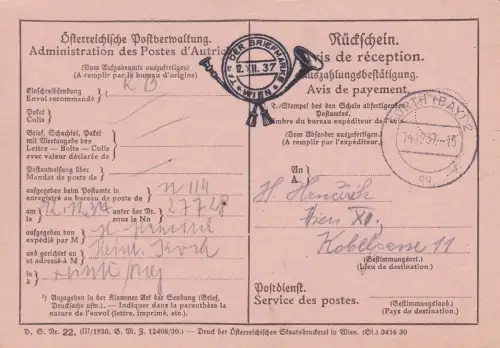 Österreichische Postverwaltung.
Administration des Postes d'Autric
(Vom Aufgabeamte auszufertigen)
(A remplir par le bureau d'origine)
Einschreibsendung
Envoi recommandé
Paket
Colis
Brief, Schachtel, Paket
mit Wertangabe von
Lettre — Boîte — Colis
avec valeur déclarée de
Postanweisung über
Mandat de poste de
aufgegeben beim Postamte in
enregistré au bureau de poste de
am
le
unter der Nr.
sous le No
27728
aufgegeben von
expédié par M
und gerichtet an
et adressé à M
in
à
¹) Angegeben in der Klammer Art der Sendung (Brief,
Drucksache usw.). — Indiquer dans la parenthèse la
nature de l'envoi (lettre, imprimé, etc.).
D. S. Nr. 22. (III/1930, G. M. Z. 12408/30.) — Druck der Österreichischen Staatsdruckerei in Wien. (St.) 3416 30
TAG DER BRIEFMARKE
12.XII.37
WIEN
Rückschein.
Avis de réception.
Auszahlungsbestätigung.
Avis de payement.
Stempel des den Schein abfertigenden
Postamtes.
Timbre du bureau expéditeur de l'avis.
(Vom Absender auszufertigen.)
(A remplir par l'expéditeur.)
FÜRTH (BAY) 2
14.12.37.-15
An
A
H
Wien XII,
Kobelgasse 11
(Bestimmungsort.)
(Lieu de destination.)
Postdienst.
Service des postes.
(Bestimmungsland.)
(Pays de destination.)